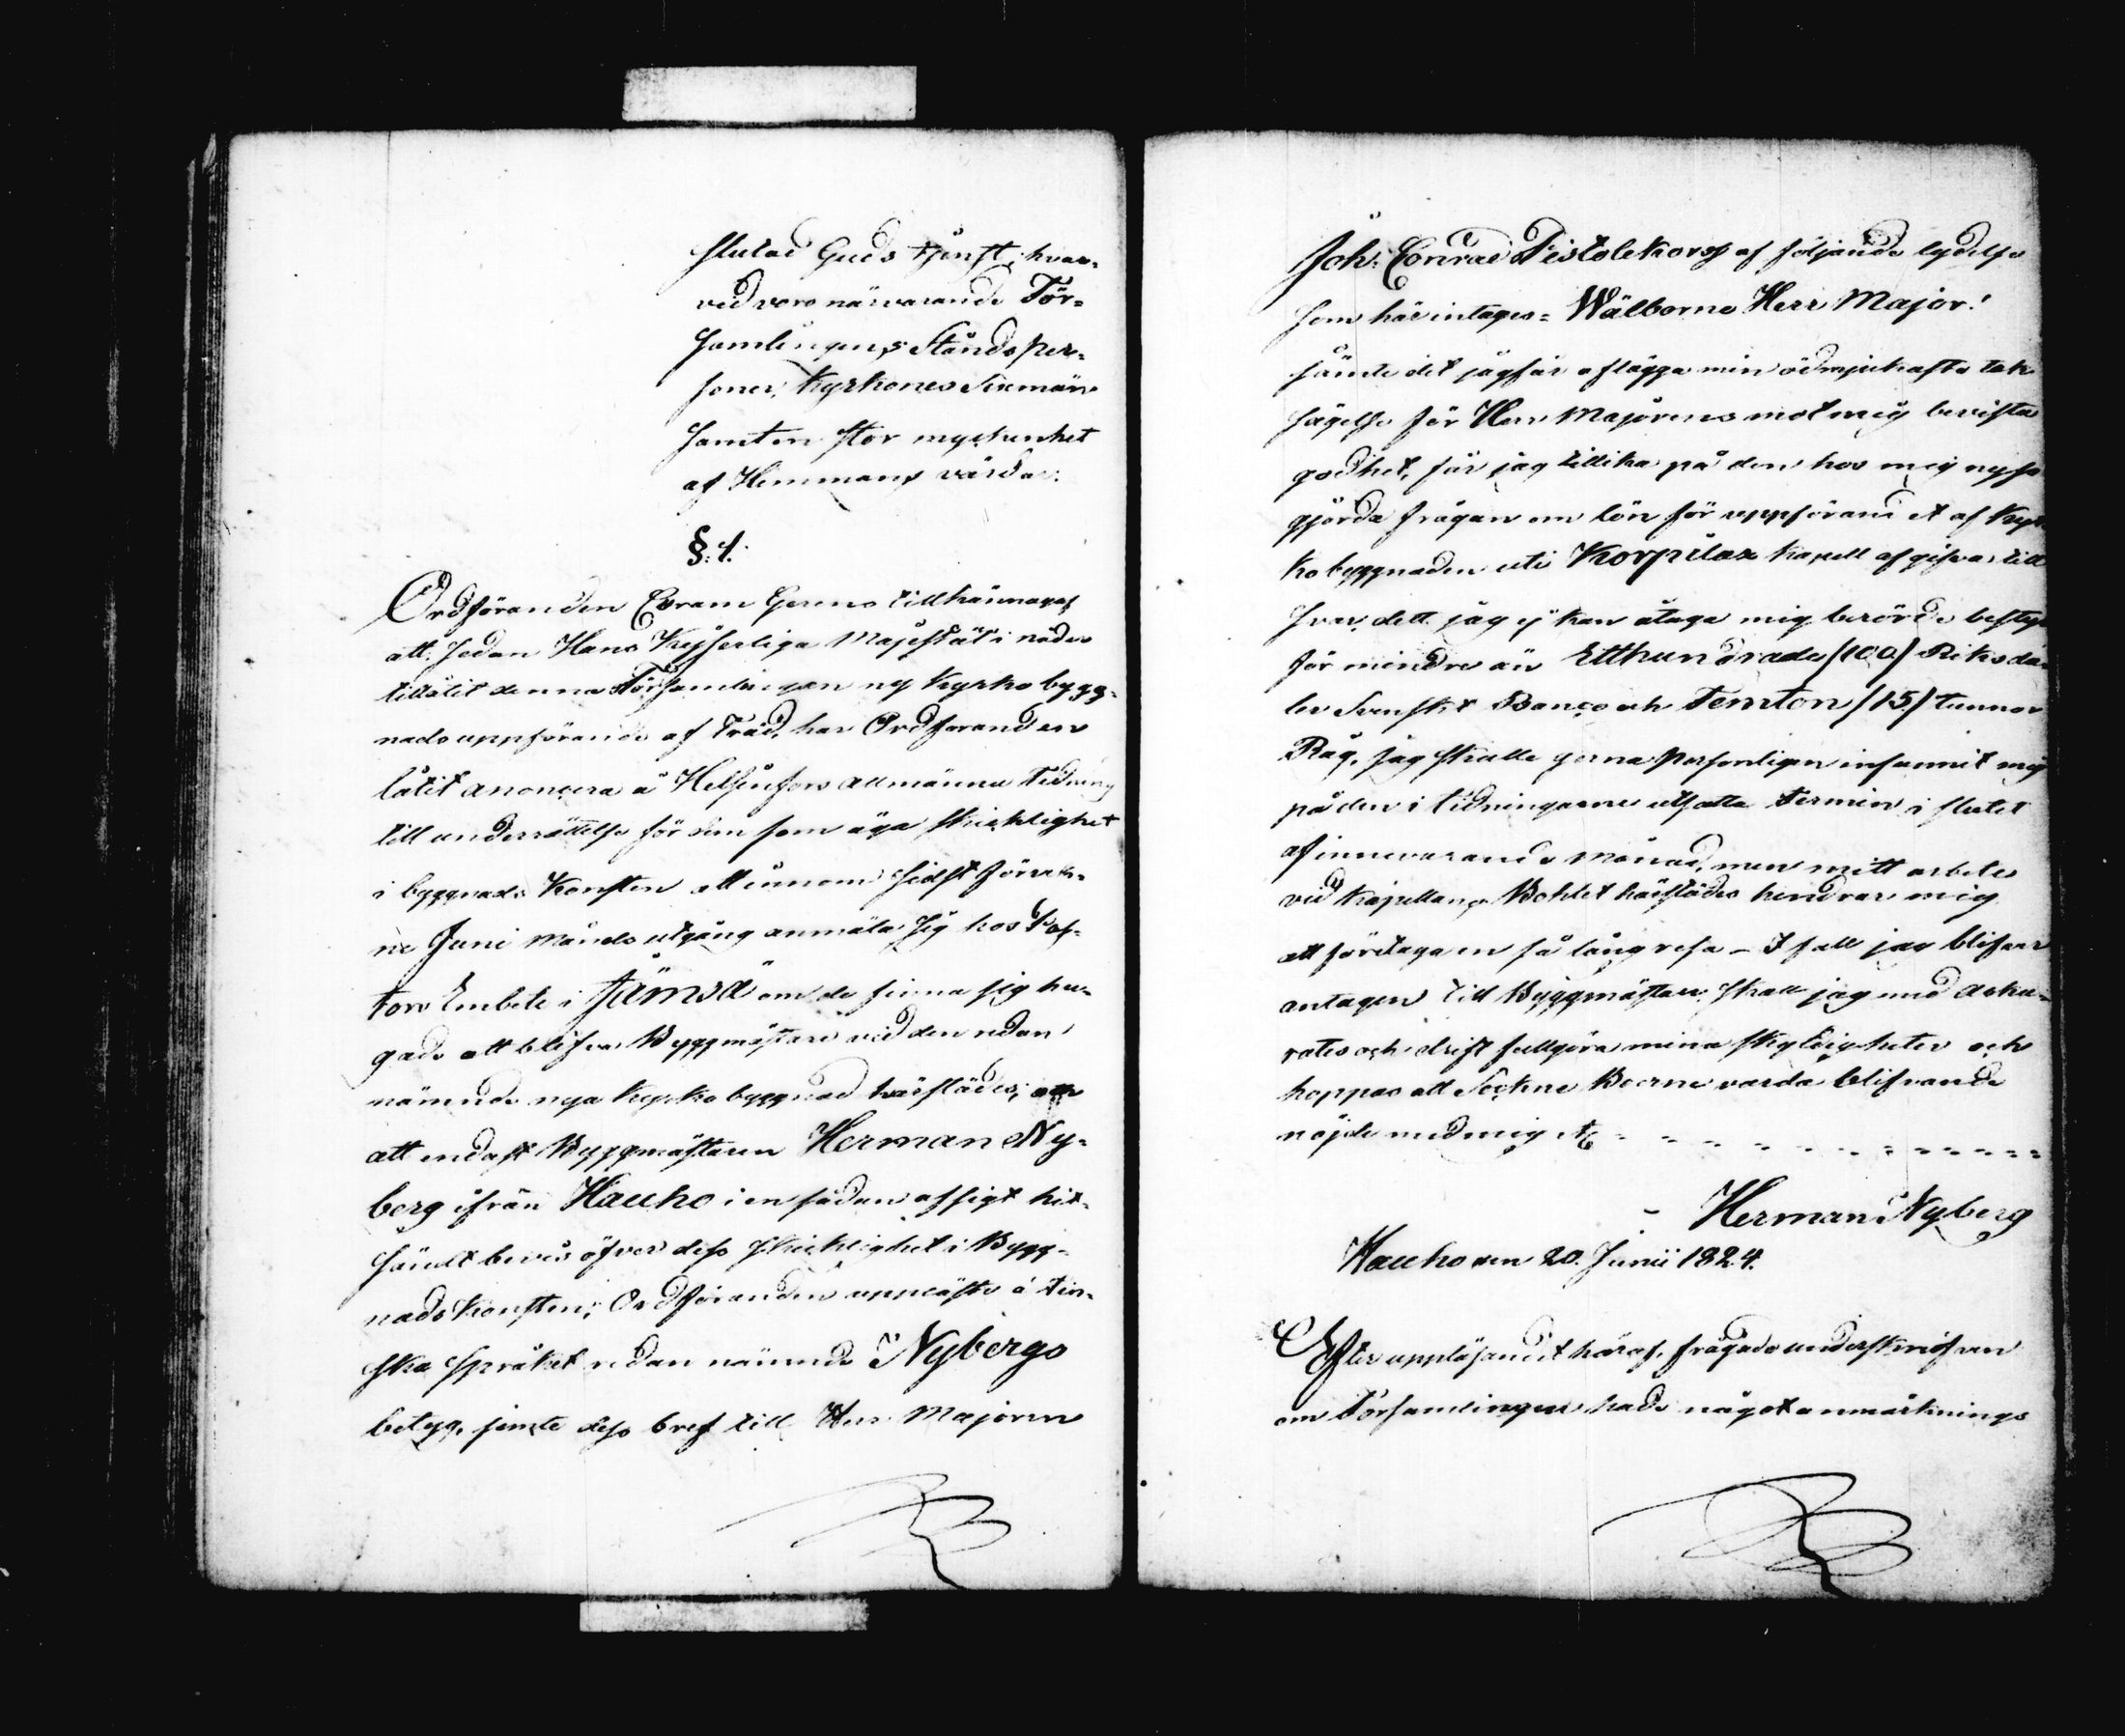 slutad Guds tjenst, hvar-
ved voro närvarande För-
samlingens Ståndsper-
soner, Kyrkones Sexmän
samt en stor myckenhet
af Hemmans värdar.
§. 1.
Ordföranden Coram Genus tillkännagaf
att sedan Hans Kejserliga Majestät i nåder
tillåtit denna Församlingen ny Kyrko bygg-
nads uppförande af Träd, har Ordföranden
låtit anoncera å Helsinfors Allmänna Tidning
till underrättelse för dem som äga skicklighet
i byggnads Konsten att innom sidst förvek-
ne Juni Månads utgång anmäla sig hos Pas-
tors Embete i Jämsä om de finna sig hu-
gade att blifva Byggmästare vid den redan
nämnde nya Kyrko byggnad härstädes;
att endast Byggmästaren Herman Ny-
berg ifrån Hauho i en sådan afsigt hit-
sändt bevis öfver dess skicklighet i Bygg-
nads Konsten; Ordföranden uppläste å Fin-
ska Språket redan nämnde Nybergs
betyg, jemte dess bref till Herr Majoren
Joh: Conrad Pistolekors af följande lydelse
som här intages = Wälborne Herr Major!
jämte det jag får aflägga min ödmjukaste tack
sägelse för Herr Majorens mot mig bevista
godhet, får jag tillika på den hos mig nyss
gjorda frågan om lön för uppförandet af Kyr
ko byggnaden uti Korpilax Kapell afgifva till
svar, dett jag ej kan åtaga mig berörde bestyr
för mindre än Etthundrade /100/ Riksda-
ler Svenskt Banco och femton /15/ tunnor
Råg. Jag skulle gerna Personligen infunnit mig
på den i tidningarne utsatta termin i slutet
af innevarande Månad, men mitt arbete
vid Kapellans Bohlet härstädes hindrar mig
att företaga en så lång resa – I fall jag blifver
antagen till Byggmästare, skall jag med Acku-
ratess och drift fullgöra mina skyldigheter och
hoppas att Sockne Boerne varda blifvande
nöjde med mig &c
Herman Nyberg
Hauho den 20. Junii 1824.
Efter uppläsandet häraf, frågade underskrifven
om Församlingen hade något anmärknings